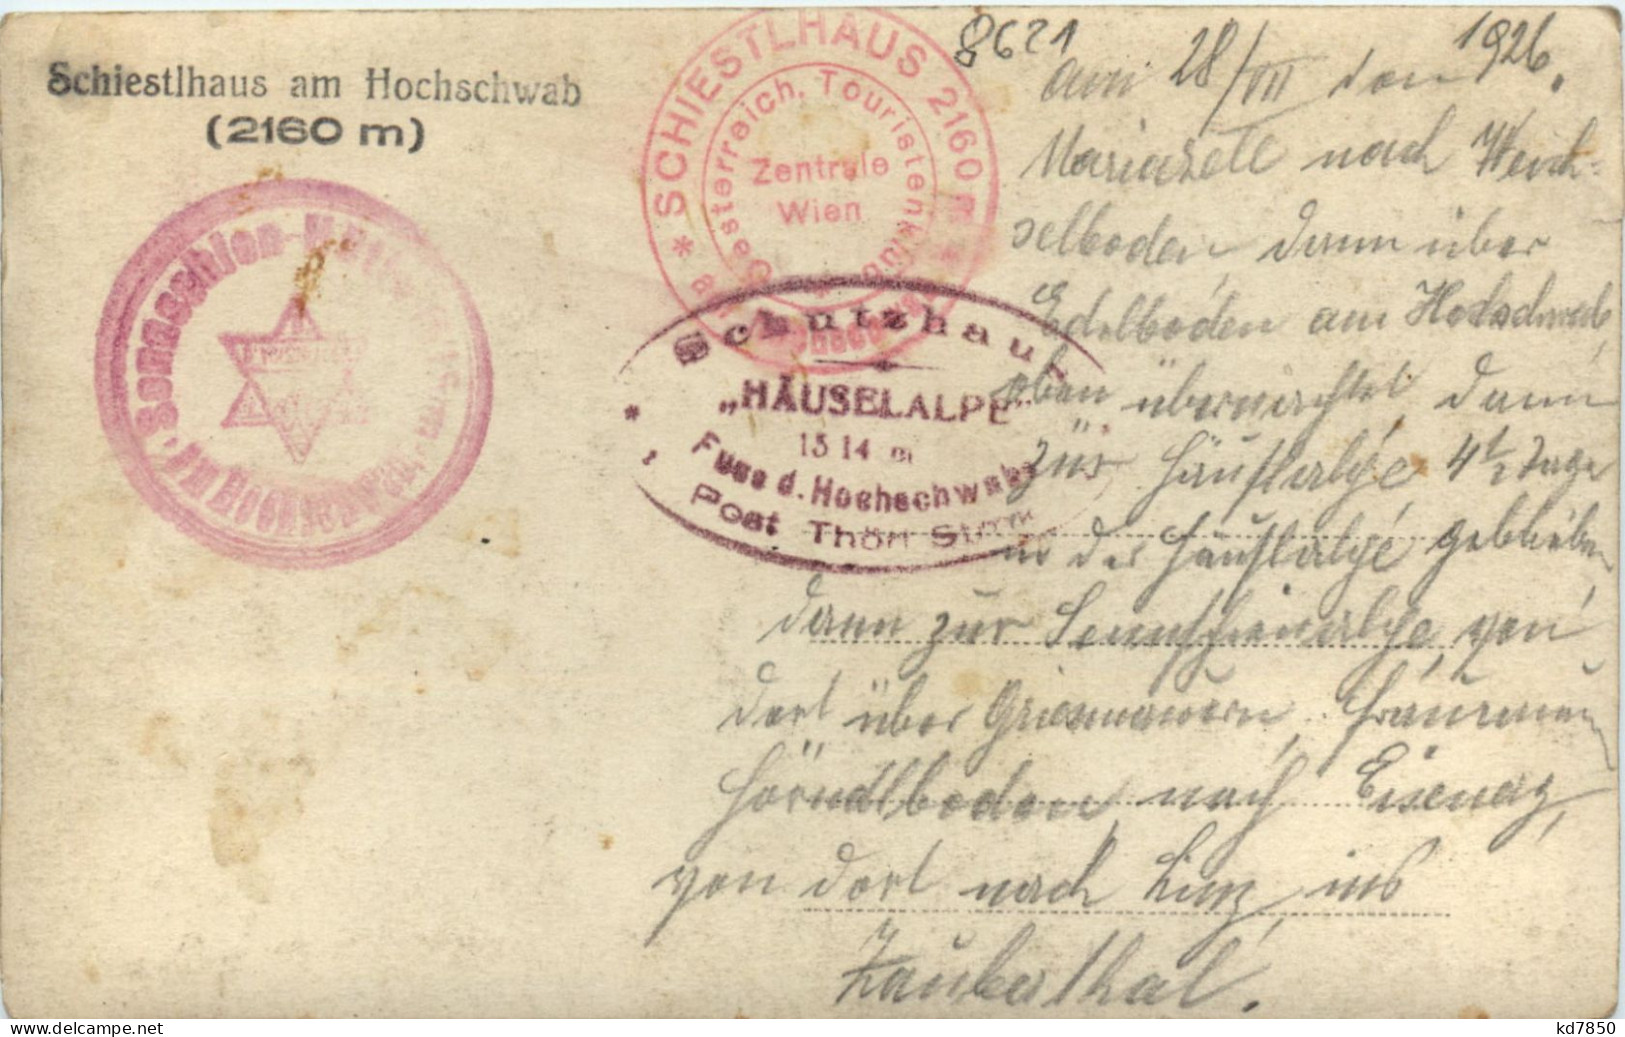 Schiestlhaus am Hochschwab
(2160 m)
SCHIESTLHAUS 2160 m
Oesterreich. Touristenklub
Zentrale
Wien
Schutzhaus
„HÄUSELALPE"
1514 m
Fuss d. Hochschwabs
Post Thörl Stmk
8621
am 28/VII von 1926.
Mariazell nach Weich-
selboden dann über
Edelboden am Hochschwab,
oben übernachtet dann
zur Häuslalpe 4½ Tage
in der Häuslalpe geblieben
dann zur Sonnschienalpe, von
dort über Griesmauern, Fraunmauer
Hörndlboden nach Eisenerz,
von dort nach Linz, ins
Zaubertal.
www.delcampe.net
kd7850